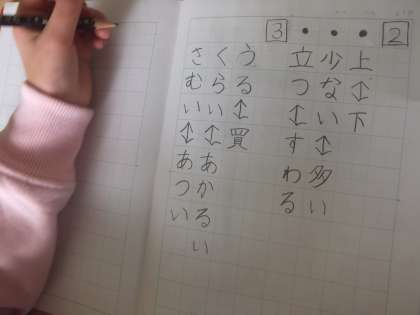 2
・上↕下
・少ない↕多い
・立つ↕すわる
3
うる↕買
くらい↕あかるい
さむい↕あつい